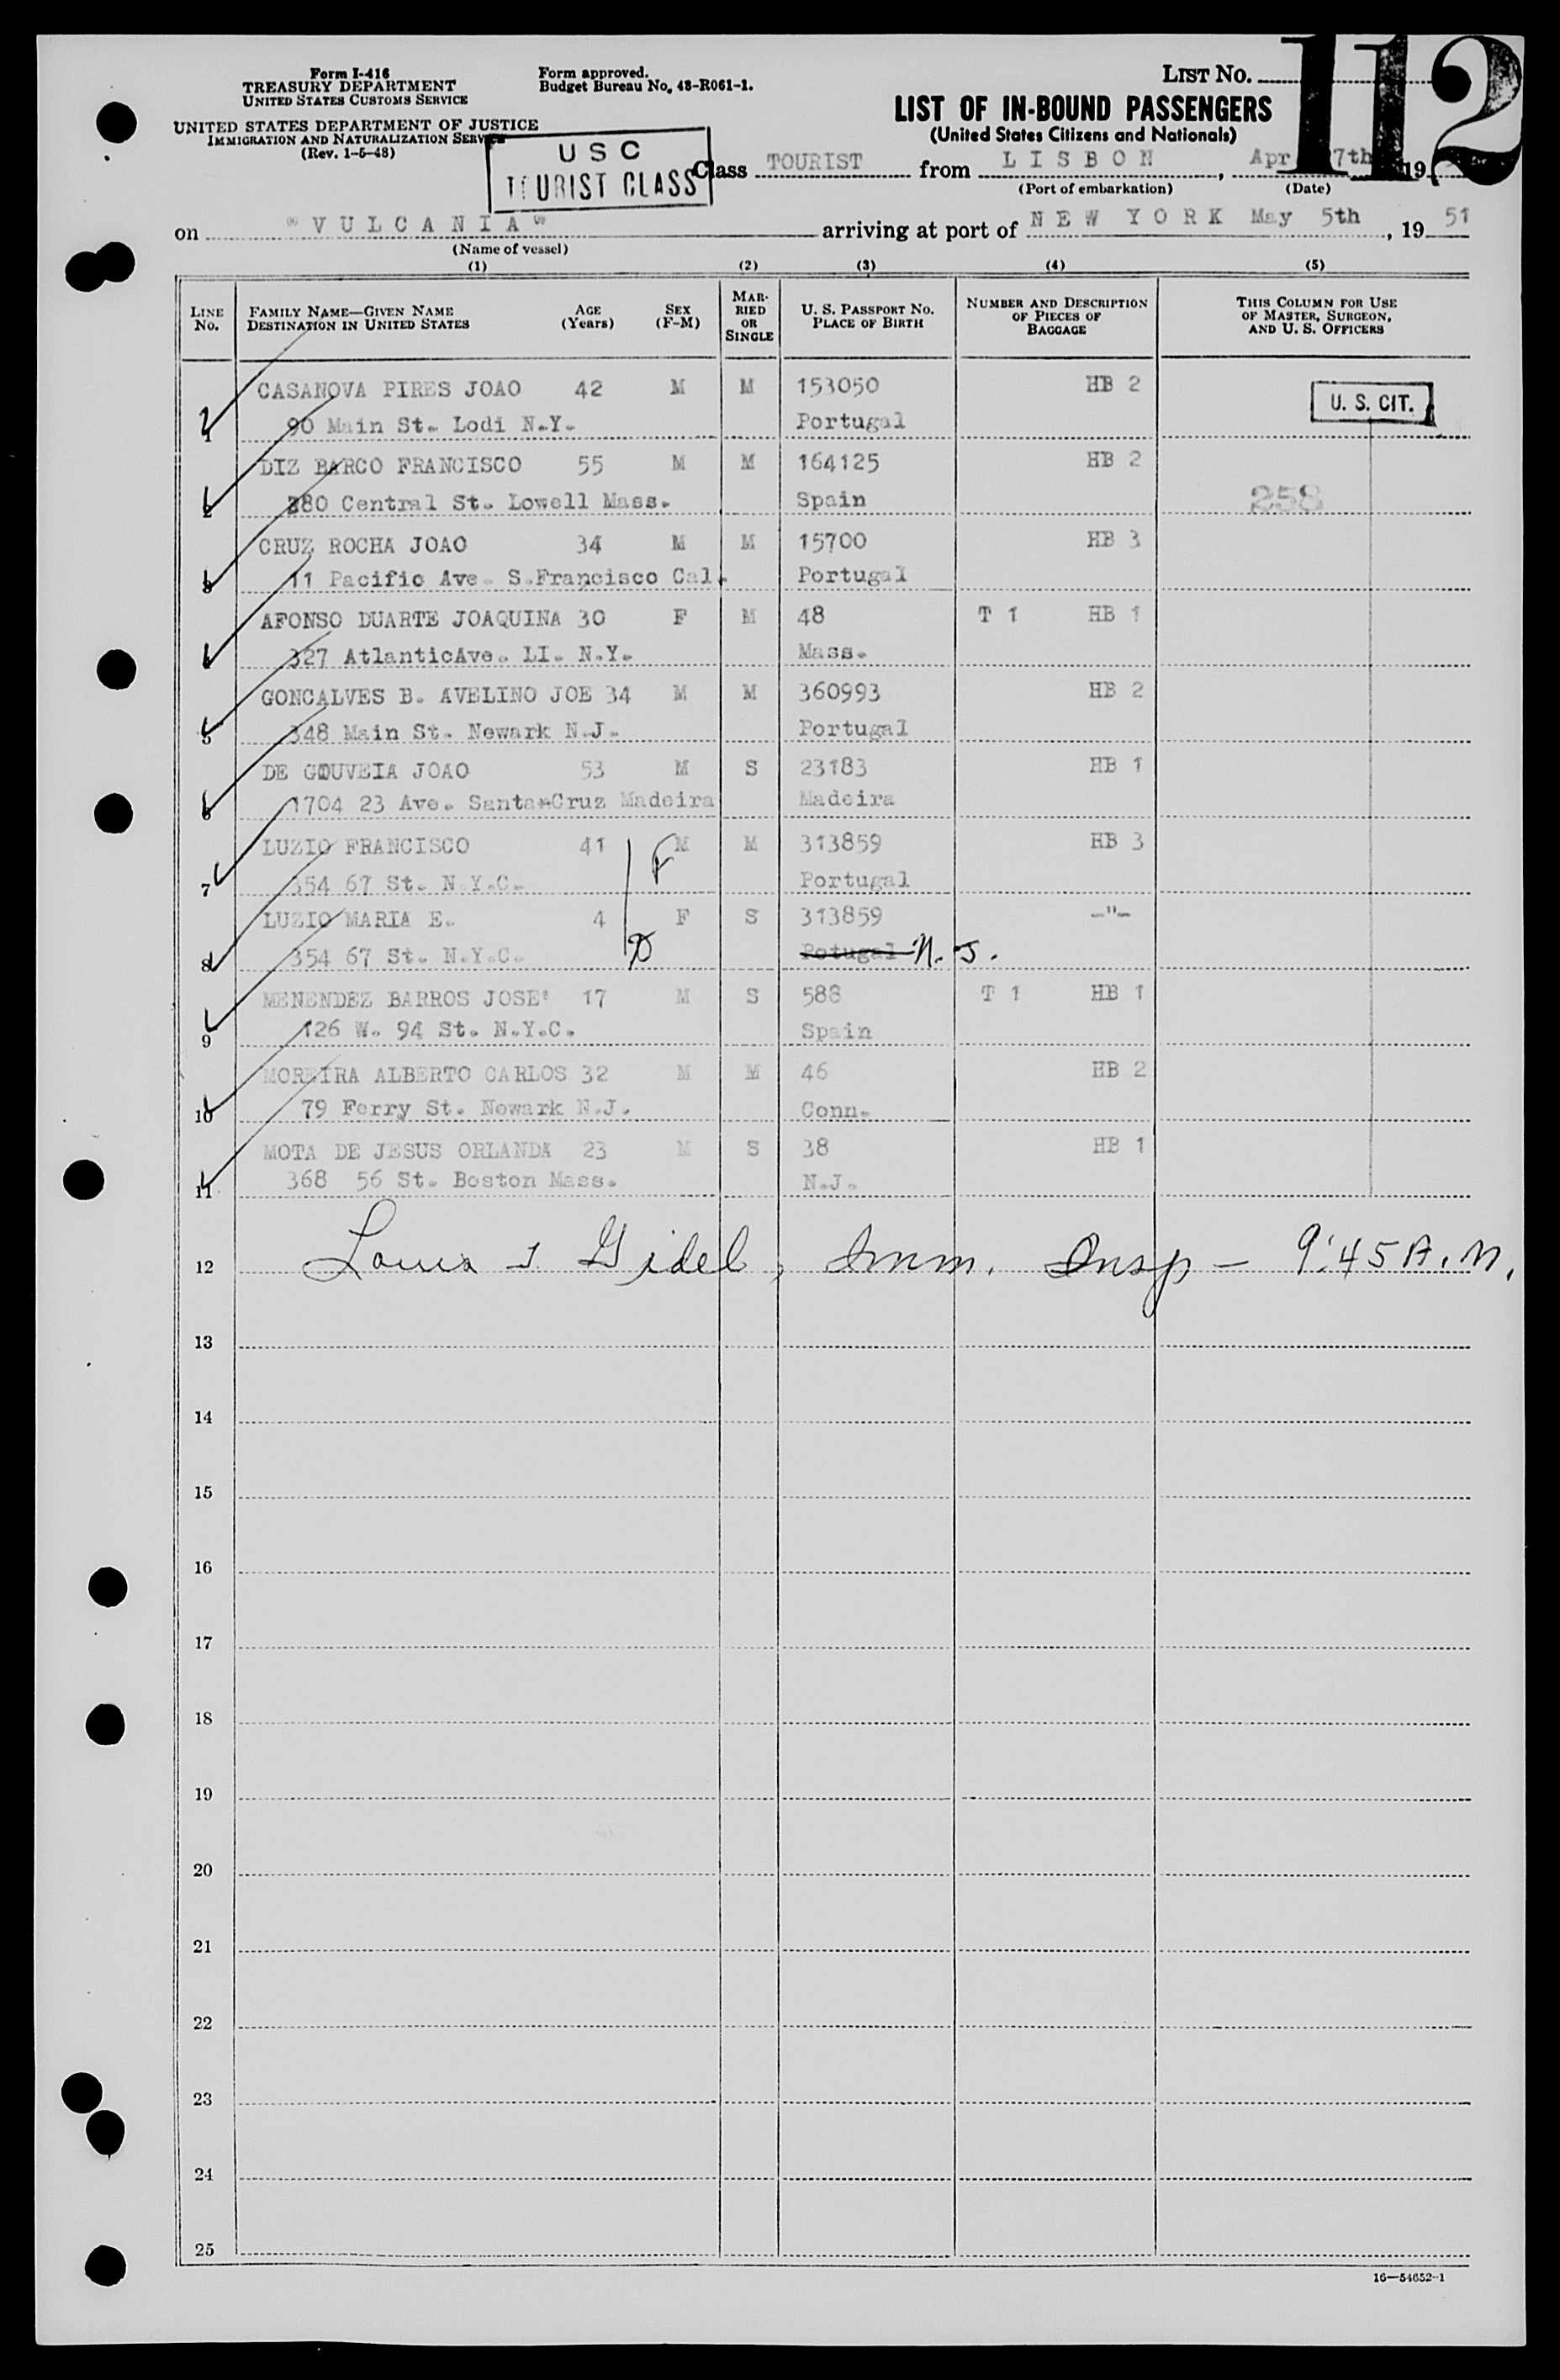 Form I-416
TREASURY DEPARTMENT
UNITED STATES CUSTOMS SERVICE
UNITED STATES DEPARTMENT OF JUSTICE
IMMIGRATION AND NATURALIZATION SERVICE
(Rev. 1-5-48)
Form approved.
Budget Bureau No. 43-R061-1.
USC
TOURIST CLASS
LIST No. 112
LIST OF IN-BOUND PASSENGERS
(United States Citizens and Nationals)
Class TOURIST from LISBON, Apr 7th 19
(Port of embarkation) (Date)
on "VULCANIA" arriving at port of NEW YORK May 5th, 19 51
(Name of vessel)
(1) (2) (3) (4) (5)
LINE No. FAMILY NAME—GIVEN NAME DESTINATION IN UNITED STATES AGE (Years) SEX (F-M) MARRIED OR SINGLE U. S. PASSPORT NO. PLACE OF BIRTH NUMBER AND DESCRIPTION OF PIECES OF BAGGAGE THIS COLUMN FOR USE OF MASTER, SURGEON, AND U. S. OFFICERS
CASANOVA PIRES JOAO 42 M M 153050 HB 2 U. S. CIT.
1 90 Main St. Lodi N.Y. Portugal
DIZ BARCO FRANCISCO 55 M M 164125 HB 2
2 380 Central St. Lowell Mass. Spain 258
CRUZ ROCHA JOAO 34 M M 15700 HB 3
3 11 Pacific Ave. S.Francisco Cal. Portugal
AFONSO DUARTE JOAQUINA 30 F M 48 T 1 HB 1
4 327 AtlanticAve. LI. N.Y. Mass.
GONCALVES B. AVELINO JOE 34 M M 360993 HB 2
5 348 Main St. Newark N.J. Portugal
DE GOUVEIA JOAO 53 M S 23183 HB 1
6 1704 23 Ave. Santa-Cruz Madeira Madeira
LUZIO FRANCISCO 41 F M M 313859 HB 3
7 354 67 St. N.Y.C. Portugal
LUZIO MARIA E. 4 F S 313859 -"-
8 354 67 St. N.Y.C. D Potugal N.J.
MENENDEZ BARROS JOSE' 17 M S 588 T 1 HB 1
9 126 W. 94 St. N.Y.C. Spain
MOREIRA ALBERTO CARLOS 32 M M 46 HB 2
10 79 Ferry St. Newark N.J. Conn.
MOTA DE JESUS ORLANDA 23 M S 38 HB 1
11 368 56 St. Boston Mass. N.J.
12 Louis I Gidel, Imm. Insp - 9:45 A.M.
13
14
15
16
17
18
19
20
21
22
23
24
25
16—54652-1